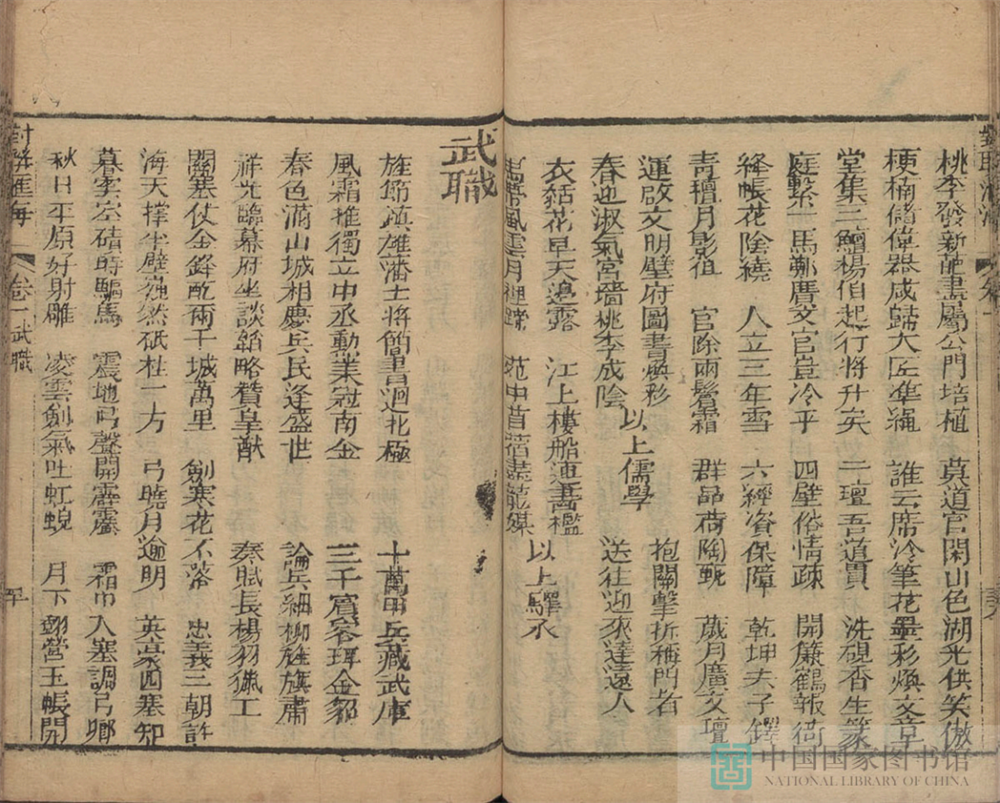 桃李發新葩盡屬公門培植 莫道官閑山色湖光供笑傲
梗楠儲偉器咸歸大匠準繩 誰云席冷筆花墨彩煥文章
堂集三鱣楊伯起行將升矣 一壇吾道貫 洗硯香生篆
庭繫一馬鄭廣文官豈冷乎 四壁俗情疎 開簾鶴報琴
絳帳花陰繞 人立三年雪 六經資保障 乾坤夫子鐸
青氊月影徂 官除兩鬢霜 群品荷陶甄 歲月廣文壇
運啟文明壁府圖書煥彩 以上儒學 抱關擊柝稱門者
春迎淑氣宮墻桃李成陰 送往迎來達遠人
衣結花早天邊露 江上樓船運畫檻 以上驛丞
風雲月裡 苑中苜蓿盡龍媒
武職
旌節鎮雄藩士將簡書迴北極 十萬甲兵藏武庫
風霜推獨立中丞勳業冠南金 三千賓客珥金貂
春色滿山城相慶兵民逢盛世 論兵細柳旌旗肅
祥光臨幕府坐談韜略贊皇猷 奏賦長楊羽獵工
關塞仗金鋒乾兩干城萬里 劍寒花不落 忠義三朝許
海天撐半壁獨然砥柱一方 弓曉月逾明 英豪四塞知
暮雲左磧時驅馬 震地弓聲開霹靂 霜巾入塞調弓鄉
秋日平原好射雕 凌雲劍氣吐虹蜺 月下 營玉帳開
對聯匯海
卷一武職
中国国家图书馆
NATIONAL LIBRARY OF CHINA